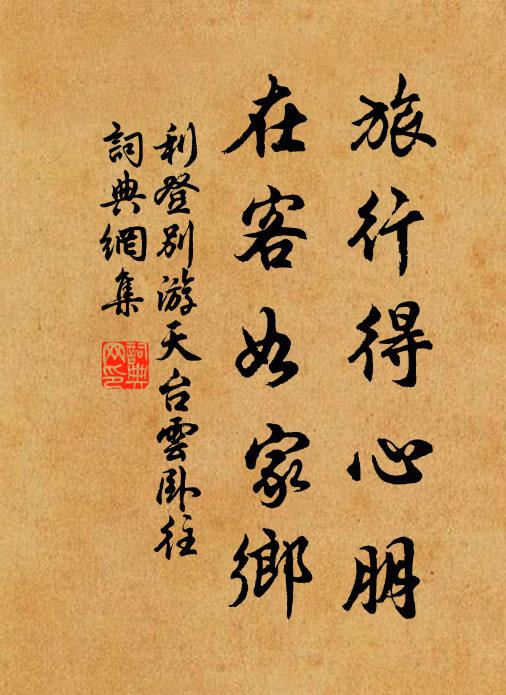 旅行得心朋
在客如家鄉
利登別游天台雲卧往
詞典網集
詞典網印